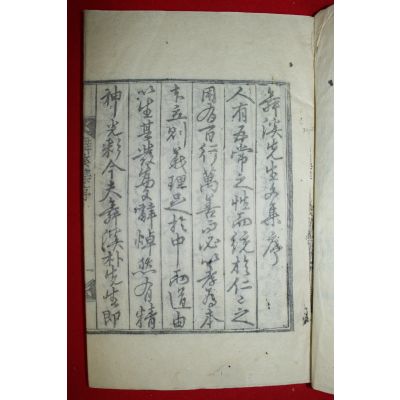 彝溪先生文集序
人有五常之性而統於仁〻之
用有百行萬善而必以孝為本
立則義理足於中而道由
以生其發為文辭焯然有精
神光彩今夫彝溪朴先生即